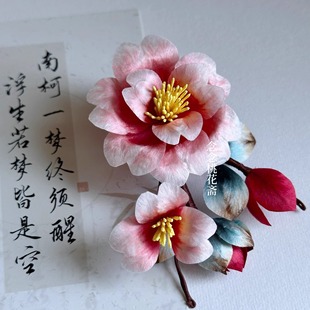 南柯一梦终须醒
浮生若梦皆是空
桃花斋